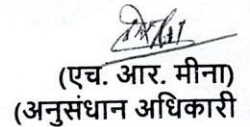 (एच. आर. मीना)
(अनुसंधान अधिकारी